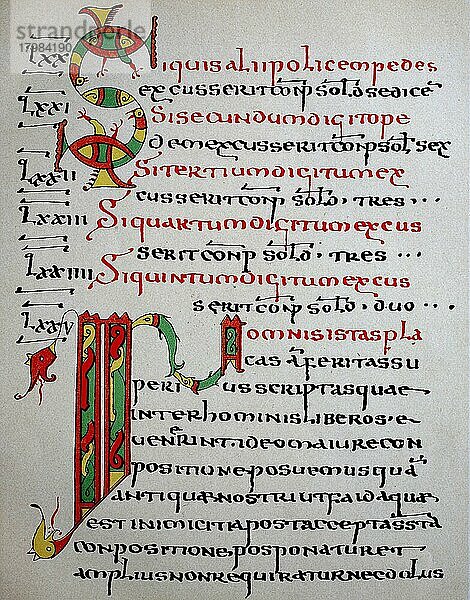 17984190
LXX SIQUISALIIPOLICEMPEDES
EXCUSSERITCONP SOLD SEDICĒ
LXXI SISECUNDUMDIGITOPE
DEMEXCUSSERITCONP SOL SEX
LXXII SITERTIUMDIGITUMEX
CUSSERITCONP SOLD, TRES···
LXXIII SIQUARTUMDIGITUMEXCUS
SERITCONP SOLD, TRES···
LXXIIII SIQUINTUMDIGITUMEXCUS
SERITCONP SOLD, DUO···
LXXV IN OMNISISTASPLA
CASAFERITASSU
PERIUSSCRIPTASQUAE
INTERHOMINISLIBEROS·E
UENERINT·IDEOMAIURECON
POSITIONEPOSUEMUSQUĀ
ANTIQUAENOSTRIUTFAIDAQUAE
ESTINIMICITIAPOSTACCEPTASSTA
CONPOSITIONE, POSPONATURET
AMPLIUSNONREQUIRATURNECDOLUS